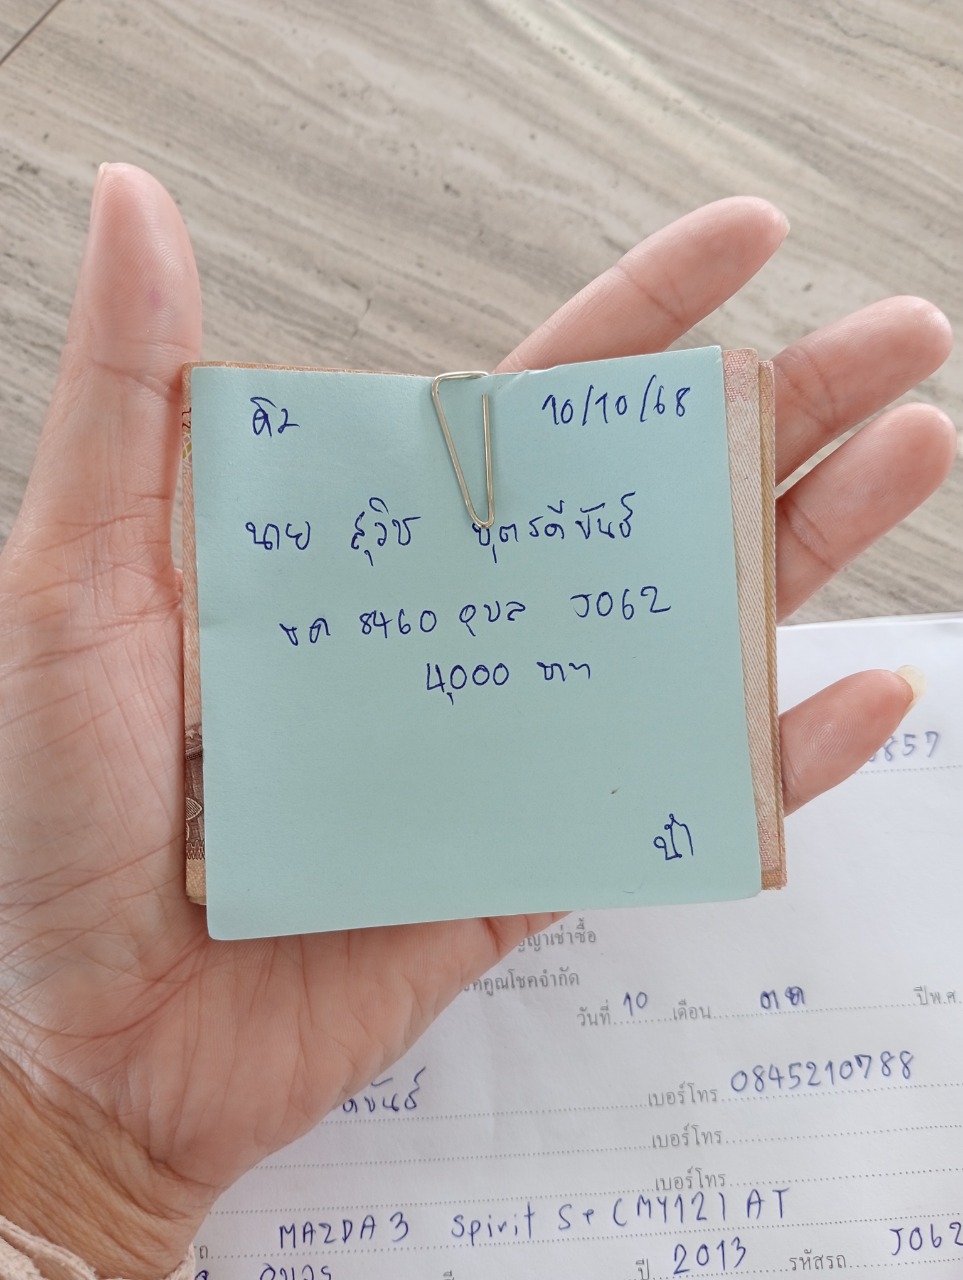 คิม 10/10/68
นาย สุวิช บุตรดีขันธ์
ขต 8460 อุบล J062
4,000 บาท
ป๋า
857
ญญาเช่าซื้อ
คูณโชคจำกัด
วันที่ 10 เดือน ตค ปีพ.ศ.
ดีขันธ์ เบอร์โทร 0845210788
เบอร์โทร
เบอร์โทร
MAZDA 3 Spirit Se (MY12) AT
ปี 2013 รหัสรถ J062